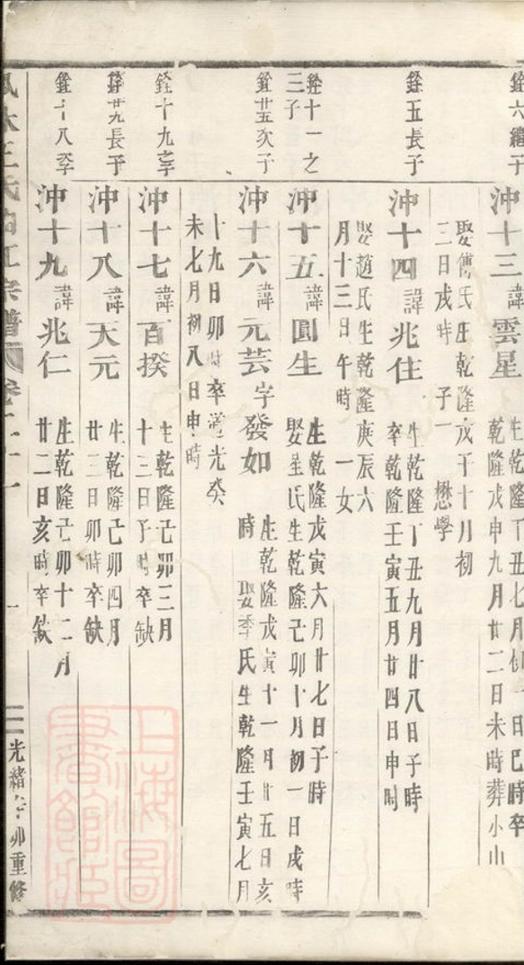 鋒六繼子
沖十三諱雲星
乾隆丁丑七月初一日巳時卒
乾隆戊申九月廿二日未時葬小山
娶傅氏生乾隆戊子十月初
三日戌時 子一 懋學
鋒五長子
沖十四諱兆住
生乾隆丁丑九月廿八日子時
卒乾隆壬寅五月廿四日申時
娶趙氏生乾隆庚辰六
月十三日午時 一女
鋒十一之
三子
沖十五諱圓生
生乾隆戊寅六月廿七日子時
娶呈氏生乾隆己卯十月初一日戌時
鋒廿五次子
沖十六諱元芸字發如
生乾隆戊寅十一月廿五日亥
時 娶季氏生乾隆壬寅七月
十九日卯時卒道光癸
未七月初八日申時
鋒十九子
沖十七諱百揆
生乾隆己卯三月
十三日子時卒缺
鋒廿九長子
沖十八諱天元
生乾隆己卯四月
廿三日卯時卒缺
鋒十八子
沖十九諱兆仁
生乾隆己卯十二月
廿二日亥時卒缺
林王氏 宗譜 卷十一 光緒 卯重修
上海圖
書館藏